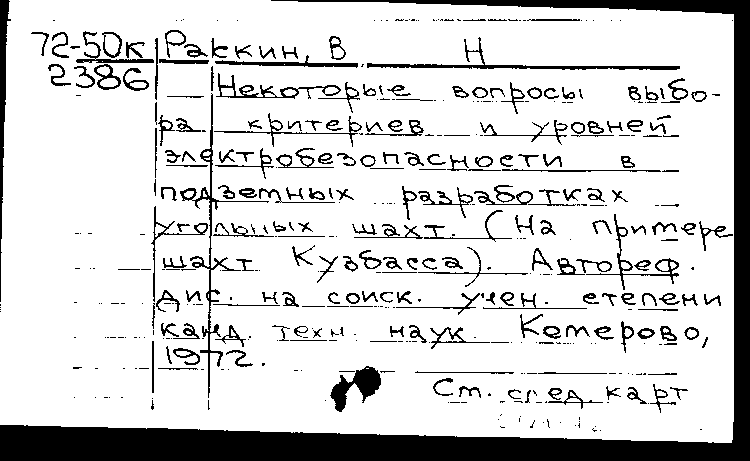 72-50к Раскин, В Н
2386 Некоторые вопросы выбо-
ра критериев и уровней
электробезопасности в
подземных разработках
угольных шахт. (На примере
шахт Кузбасса). Автореф.
дис. на соиск. учен. степени
канд. техн. наук Кемерово,
1972.
См. след. карт